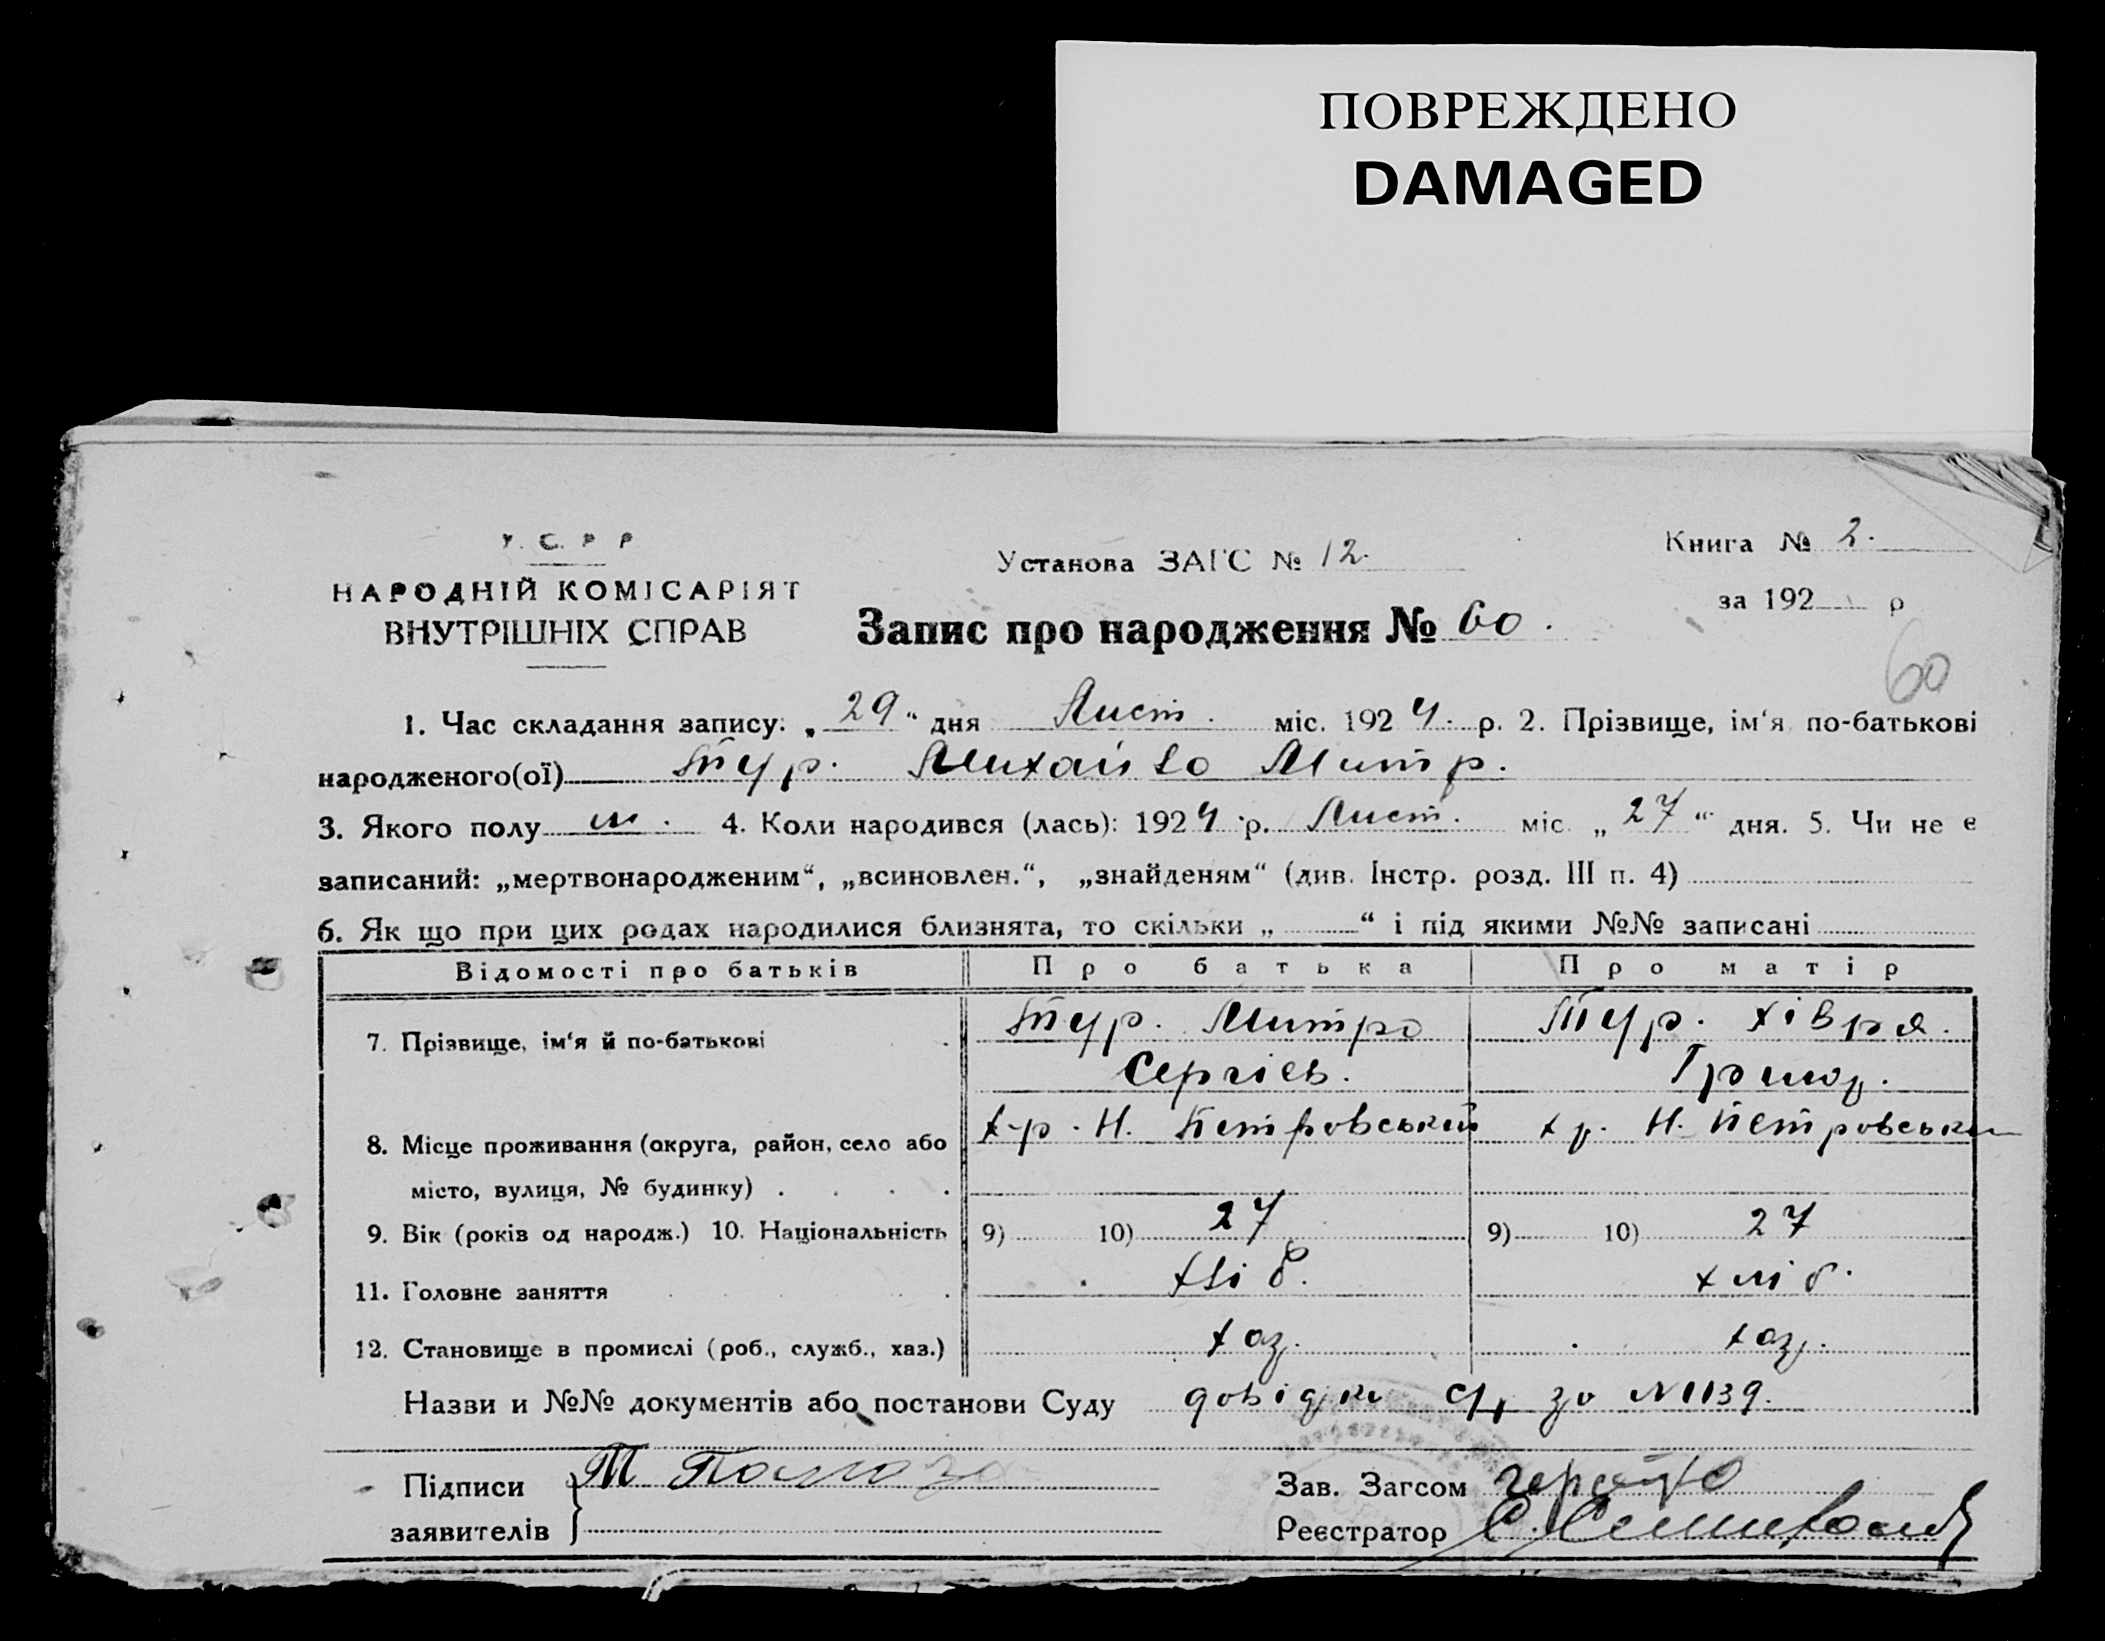 ПОВРЕЖДЕНО
DAMAGED
У. С. Р Р
НАРОДНІЙ КОМІСАРІЯТ
ВНУТРІШНІХ СПРАВ
Установа ЗАГС № 12.
Книга № 2.
за 192 р
Запис про народження № 60.
60
1. Час складання запису: „ 29 “ дня Лист. міс. 1924 р. 2. Прізвище, ім‘я по-батькові
народженого(ої) Тур. Михайло Митр.
3. Якого полу м. 4. Коли народився (лась): 1924 р. Лист. міс. „ 27 “ дня. 5. Чи не є
записаний: „мертвонародженим“, „всиновлен.“, „знайденям“ (див. Інстр. розд. III п. 4)
6. Як що при цих родах народилися близнята, то скільки „ “ і під якими №№ записані
Відомості про батьків Про батька Про матір
7. Прізвище, ім‘я й по-батькові Тур. Митро Тур. Хівря.
Сергієв. Григор.
8. Місце проживання (округа, район, село або х-р. Н. Петровський хр. Н. Петровськи
місто, вулиця, № будинку)
9. Вік (років од народж.) 10. Національність 9) 10) 27 9) 10) 27
11. Головне заняття хліб. хліб.
12. Становище в промислі (роб., служб., хаз.) хаз. хаз.
Назви и №№ документів або постанови Суду довідки за N 1139.
Підписи
Зав. Загсом
заявителів
Реєстратор